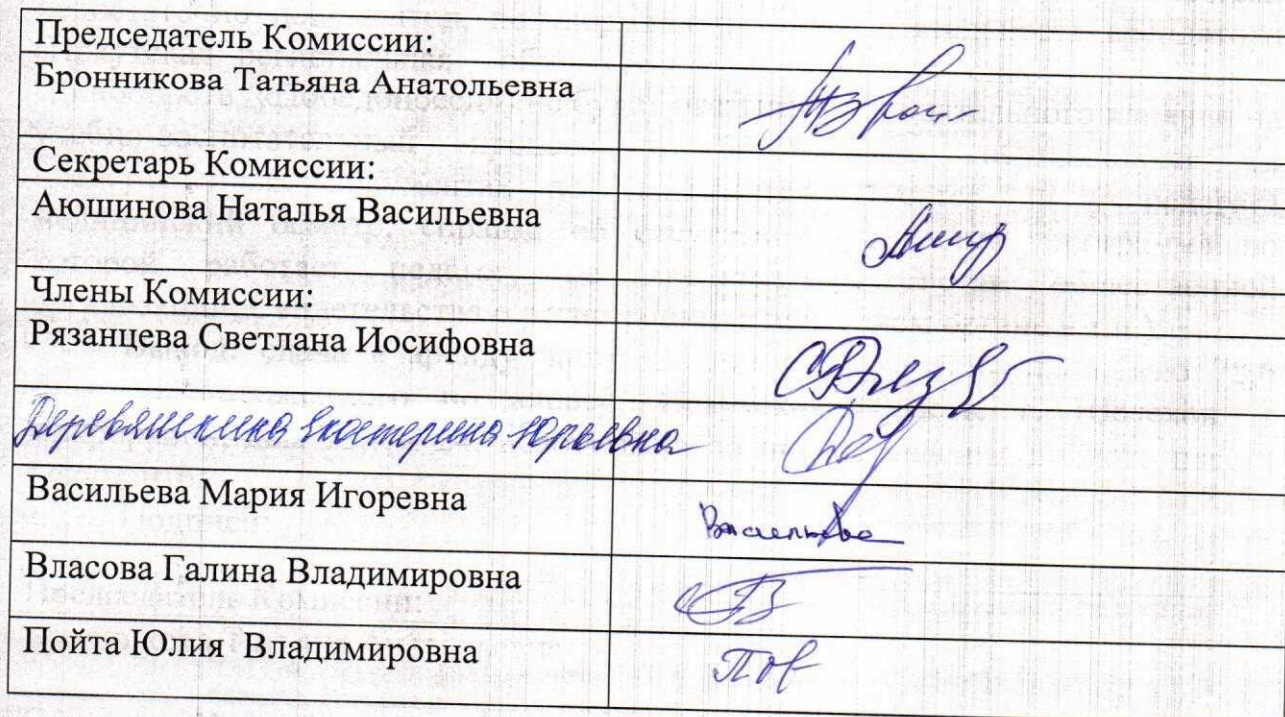 Председатель Комиссии:
Бронникова Татьяна Анатольевна
Секретарь Комиссии:
Аюшинова Наталья Васильевна
Члены Комиссии:
Рязанцева Светлана Иосифовна
Деревяшкина Екатерина Юрьевна
Васильева Мария Игоревна
Васильева
Власова Галина Владимировна
Пойта Юлия Владимировна